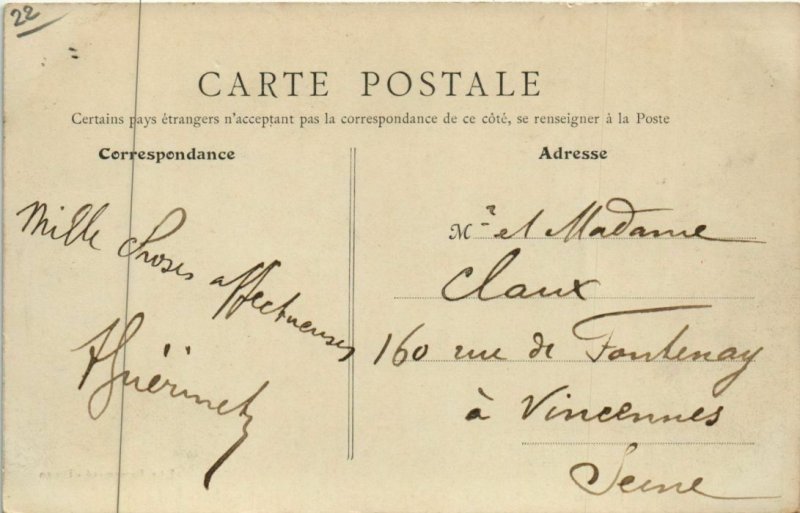 22
CARTE POSTALE
Certains pays étrangers n'acceptant pas la correspondance de ce côté, se renseigner à la Poste
Correspondance
Mille choses affectueuses
Adresse
Mr et Madame
Claux
160 rue de Fontenay
à Vincennes
Seine